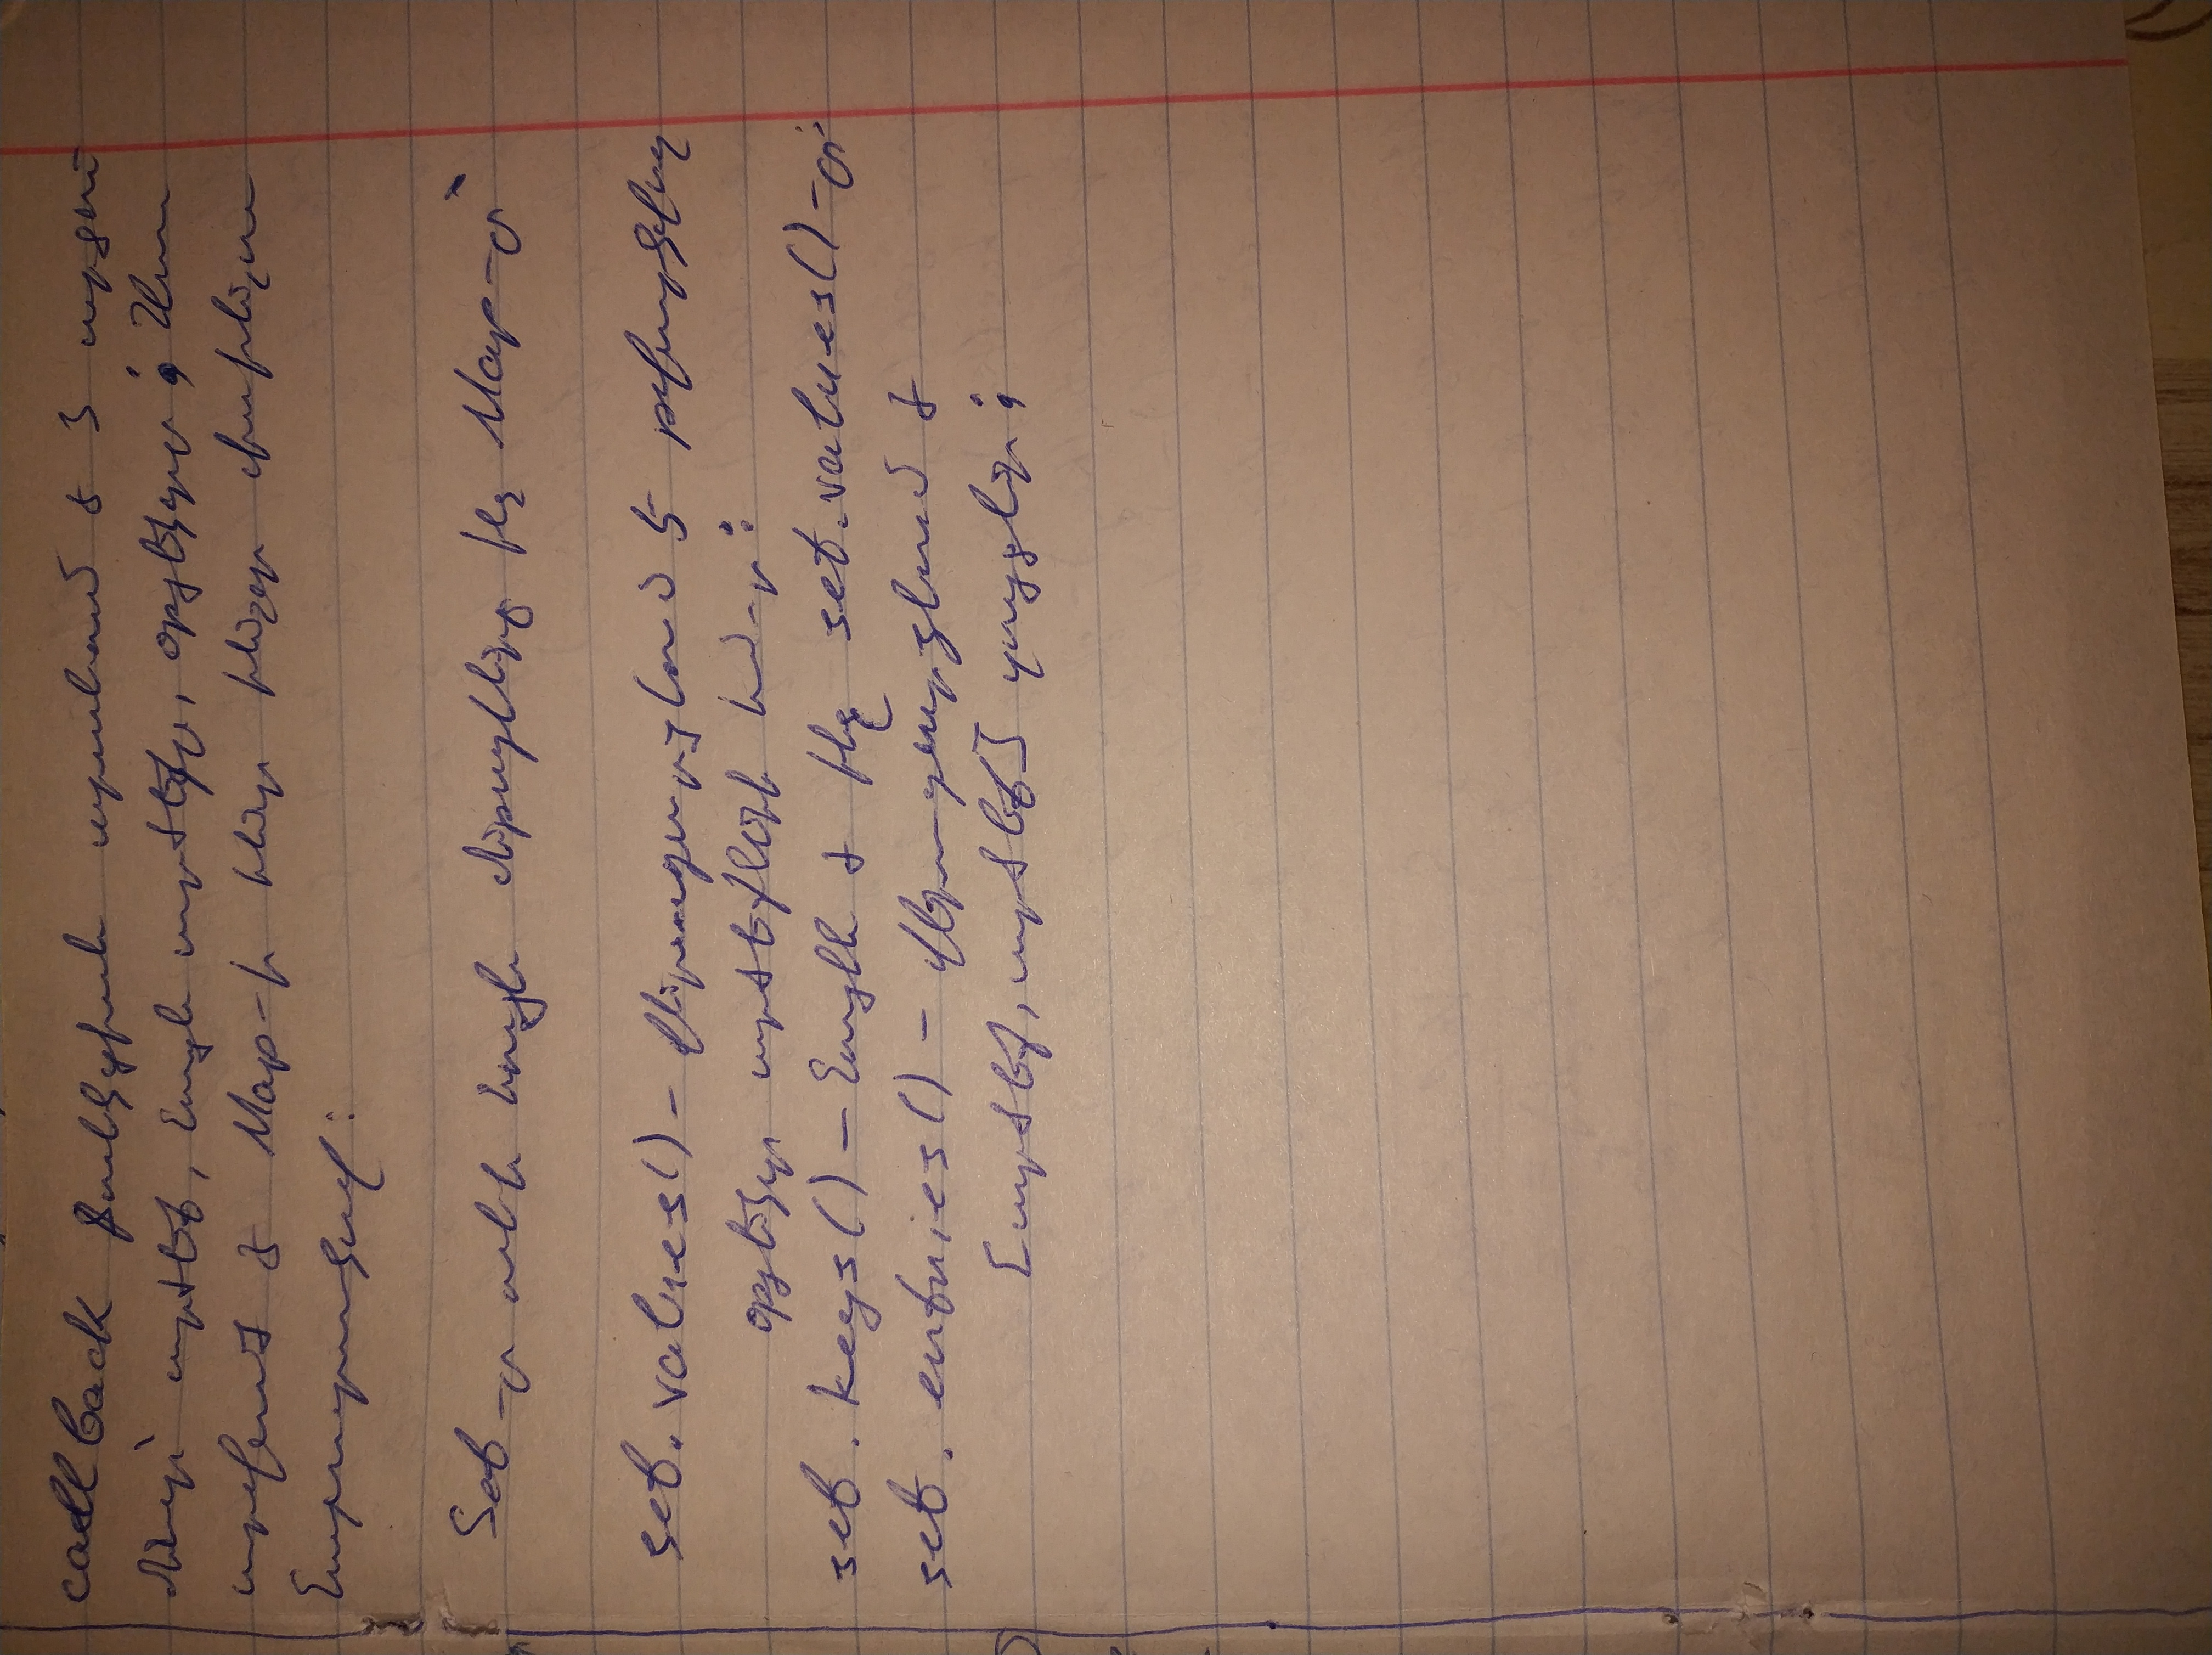 callback ֆունկցիան ստանում է 3 արգու
մենտ՝ արժեք, նույն արժեքը, օբյեկտը։ Սա
արվում է Map-ի հետ ինչոր
համար։
Set-ը ունի նույն մեթոդները ինչ Map-ը՝
set.values() - վերադարձնում է
օբյեկտ արժեքների համար։
set.keys() - նույնն է ինչ set.values()-ը՝
set.entries() - վերադարձնում է
[արժեք, արժեք] զույգեր։